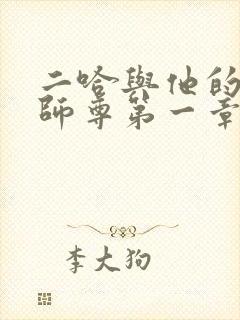 二哈與他的
師尊第一章
李大狗